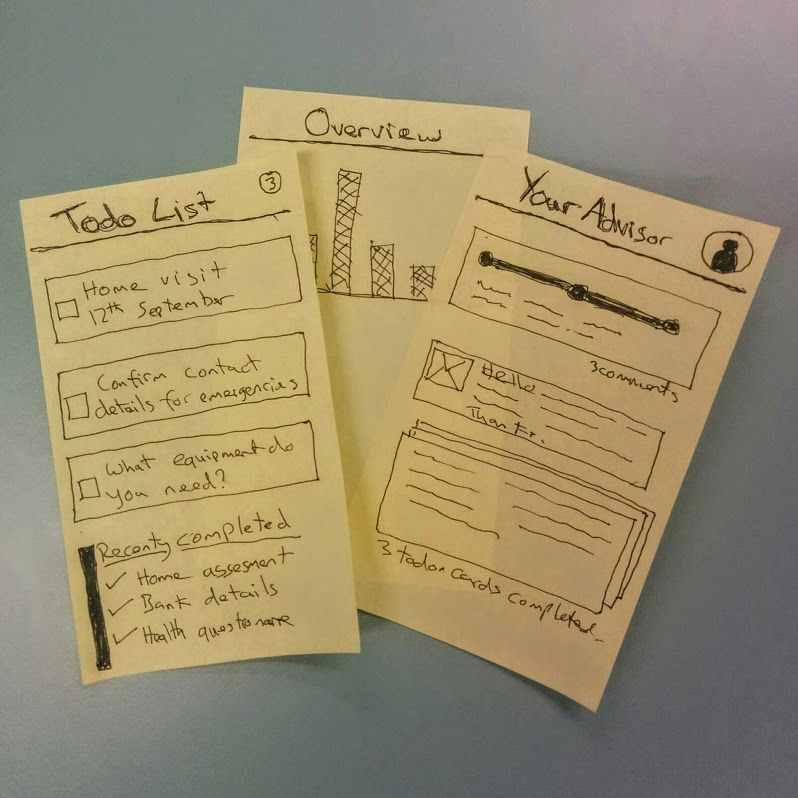 Todo List
3
Home visit
12th September
Confirm contact
details for emergencies
What equipment do
you need?
Recenty completed
✓ Home assesment
✓ Bank details
✓ Health questionaire
Overview
Your Advisor
3 comments
Hello
Thanks.
3 todo cards completed.